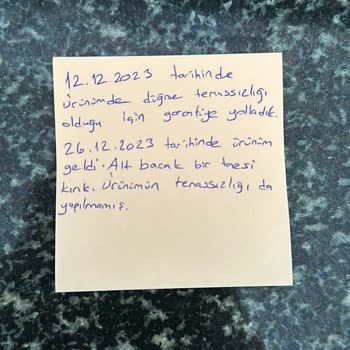 12.12.2023 tarihinde
ürünümde düğme temassızlığı
olduğu için garantiye yolladık.
26.12.2023 tarihinde ürünüm
geldi. Alt bacak bir tanesi
kırık. Ürünümün temassızlığı da
yapılmamış.